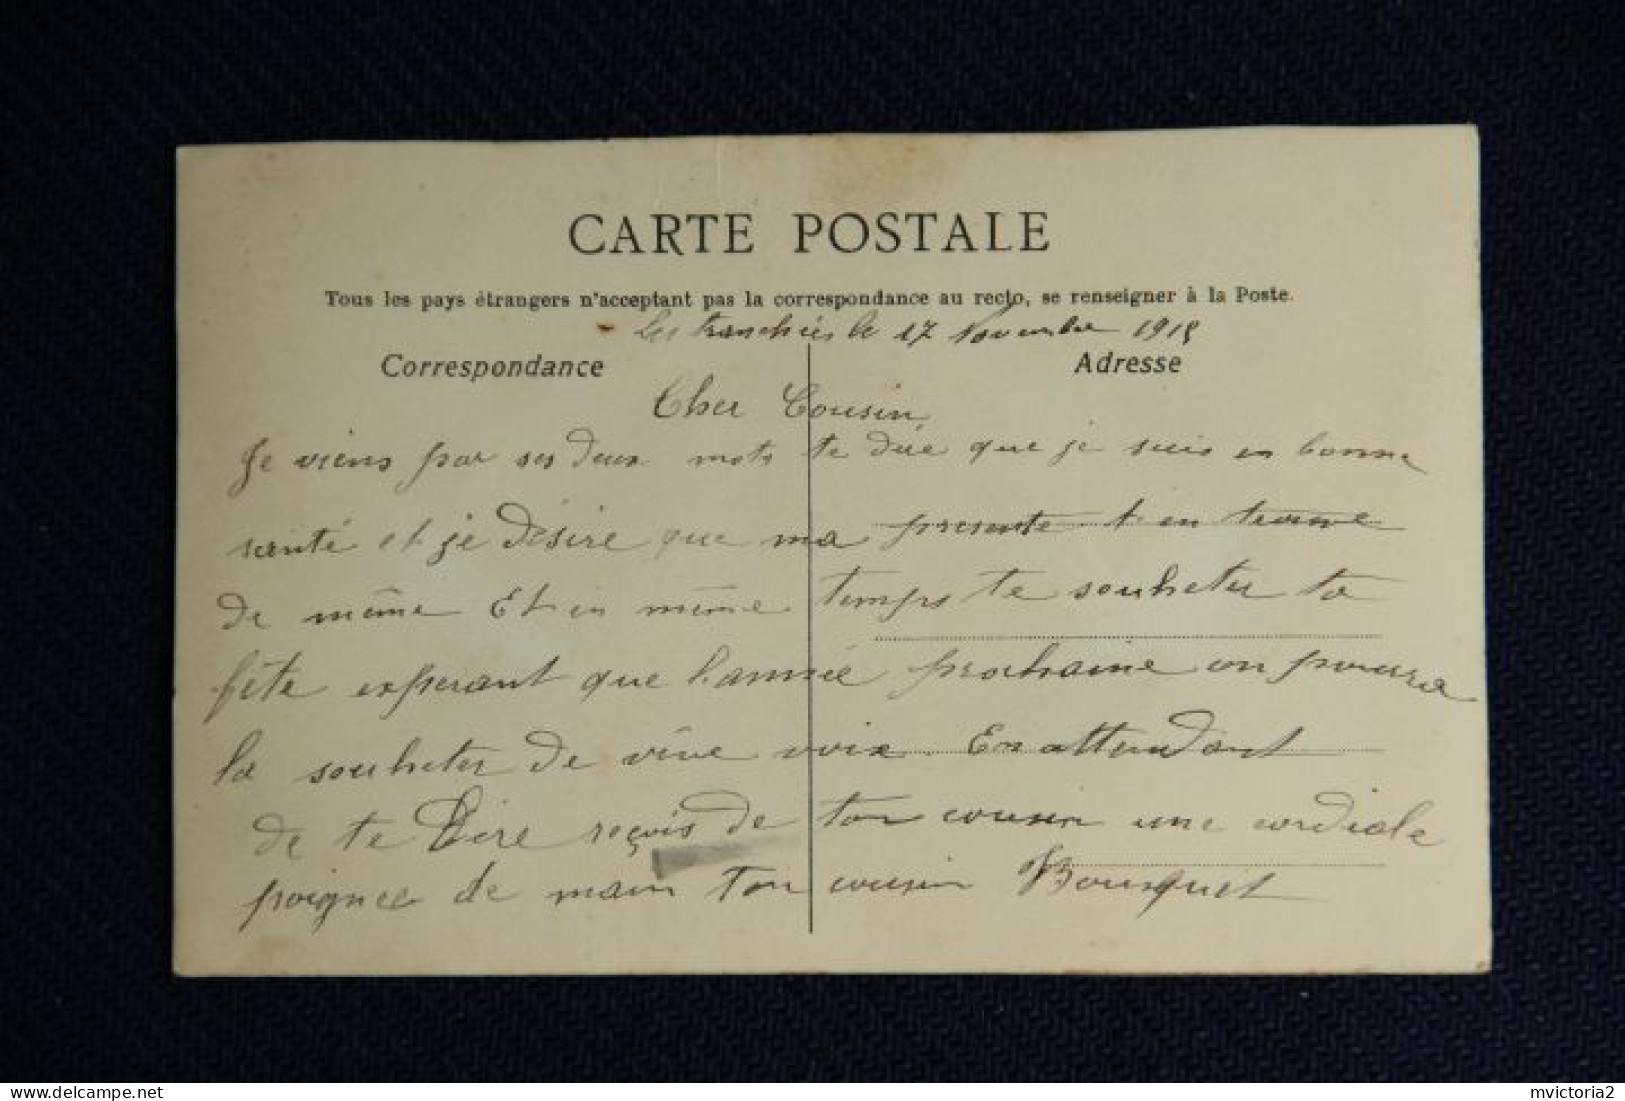 CARTE POSTALE
Tous les pays étrangers n'acceptant pas la correspondance au recto, se renseigner à la Poste.
Les tranchées le 17 Novembre 1915
Correspondance
Adresse
Cher Cousin
Je viens par ses deux mots te dire que je suis en bonne
santé et je désire que ma présente t'en trouve
de même Et en même temps te souheter ta
fête experant que l'année prochaine on pourra
la souheter de vive voix. En attendant
de te Lire reçois de ton cousin une cordiale
poignee de main ton cousin Bousquet
mvictoria2